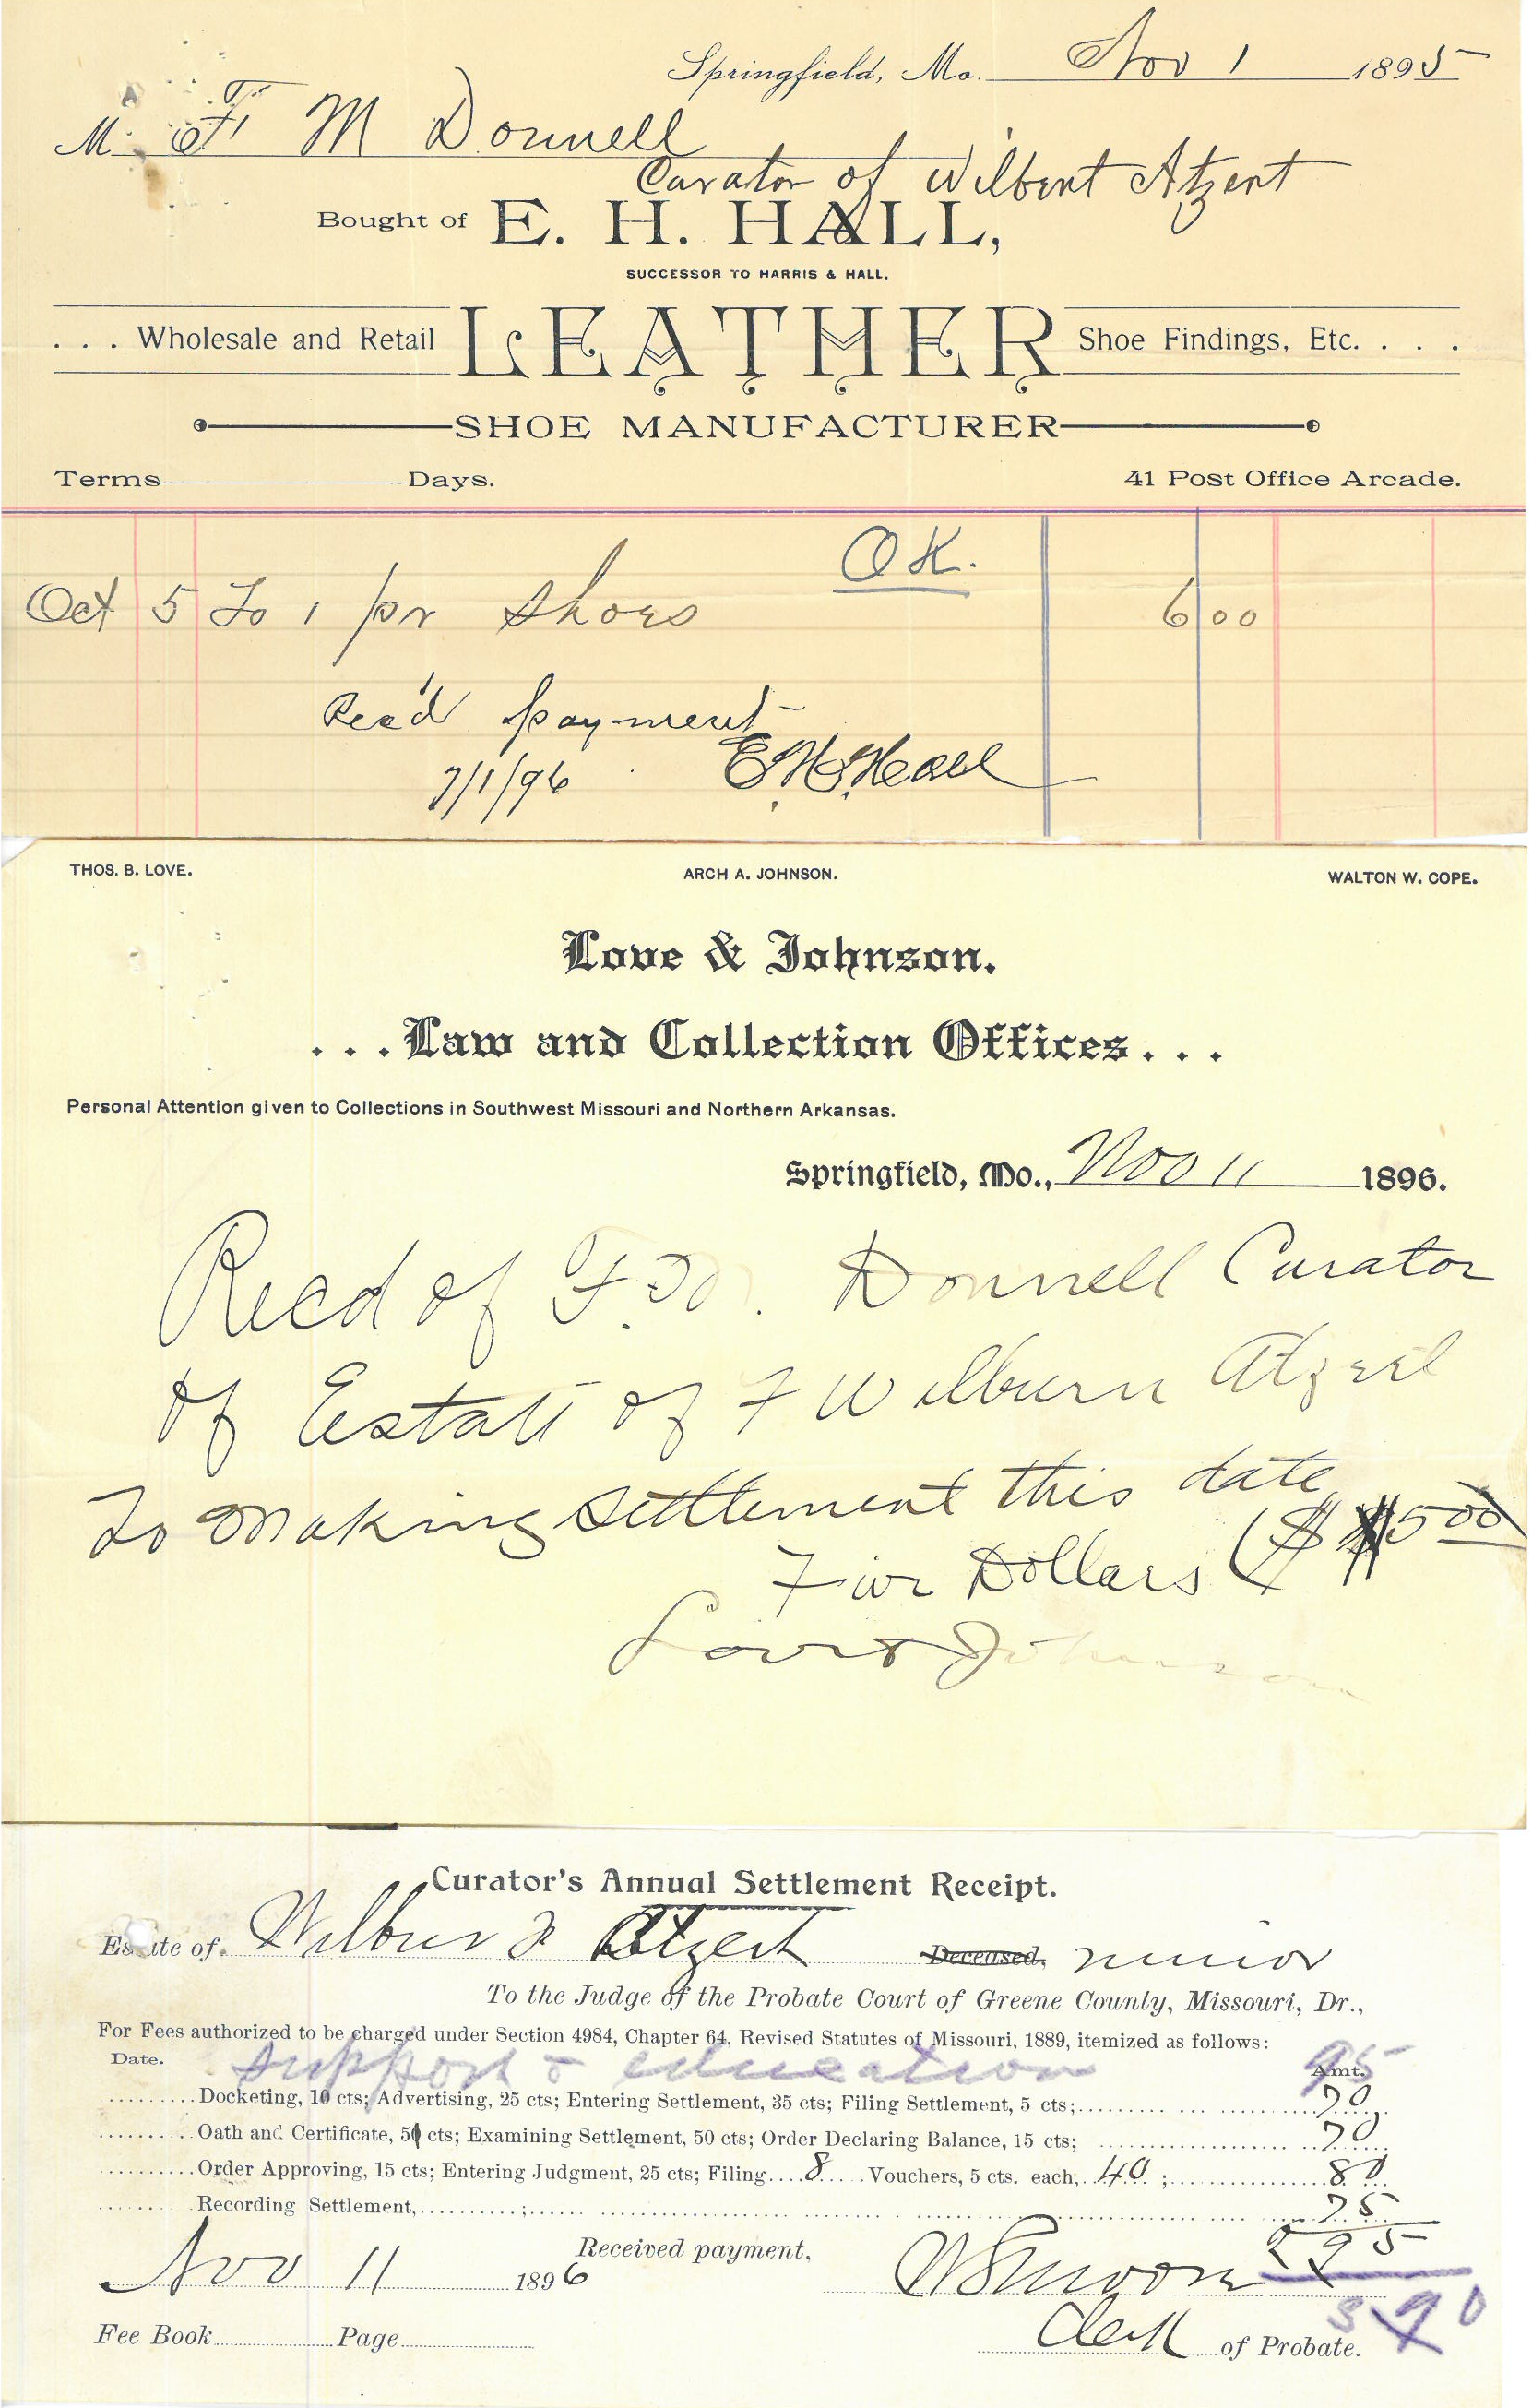 Springfield, Mo. Nov 1 1895
M. F M Donnell
Curator of Wilbert Atzert
Bought of E. H. HALL,
SUCCESSOR TO HARRIS & HALL,
. . . Wholesale and Retail LEATHER Shoe Findings, Etc. . . . .
SHOE MANUFACTURER
Terms Days. 41 Post Office Arcade.
OK.
Oct 5 To 1 pr Shoes 6 00
Rec'd payment
7/1/96 E. H. Hall
THOS. B. LOVE. ARCH A. JOHNSON. WALTON W. COPE.
Love & Johnson.
. . . Law and Collection Offices . . .
Personal Attention given to Collections in Southwest Missouri and Northern Arkansas.
Springfield, Mo., Nov 11 1896.
Recd of F. M. Donnell Curator
of Estate of F Wilburn Atzert
To Making Settlement this date
Five Dollars ($ 5 00
Love & Johnson
Curator's Annual Settlement Receipt.
Estate of Wilbur F Atzert Deceased, minor
To the Judge of the Probate Court of Greene County, Missouri, Dr.,
For Fees authorized to be charged under Section 4984, Chapter 64, Revised Statutes of Missouri, 1889, itemized as follows:
Date. Support & education Amt. 95
Docketing, 10 cts; Advertising, 25 cts; Entering Settlement, 35 cts; Filing Settlement, 5 cts; 70
Oath and Certificate, 50 cts; Examining Settlement, 50 cts; Order Declaring Balance, 15 cts; 70
Order Approving, 15 cts; Entering Judgment, 25 cts; Filing 8 Vouchers, 5 cts. each, 40 ; 80
Recording Settlement, ; 75
2 95
Received payment,
Nov 11 1896 Clerk of Probate.
3 90
Fee Book Page